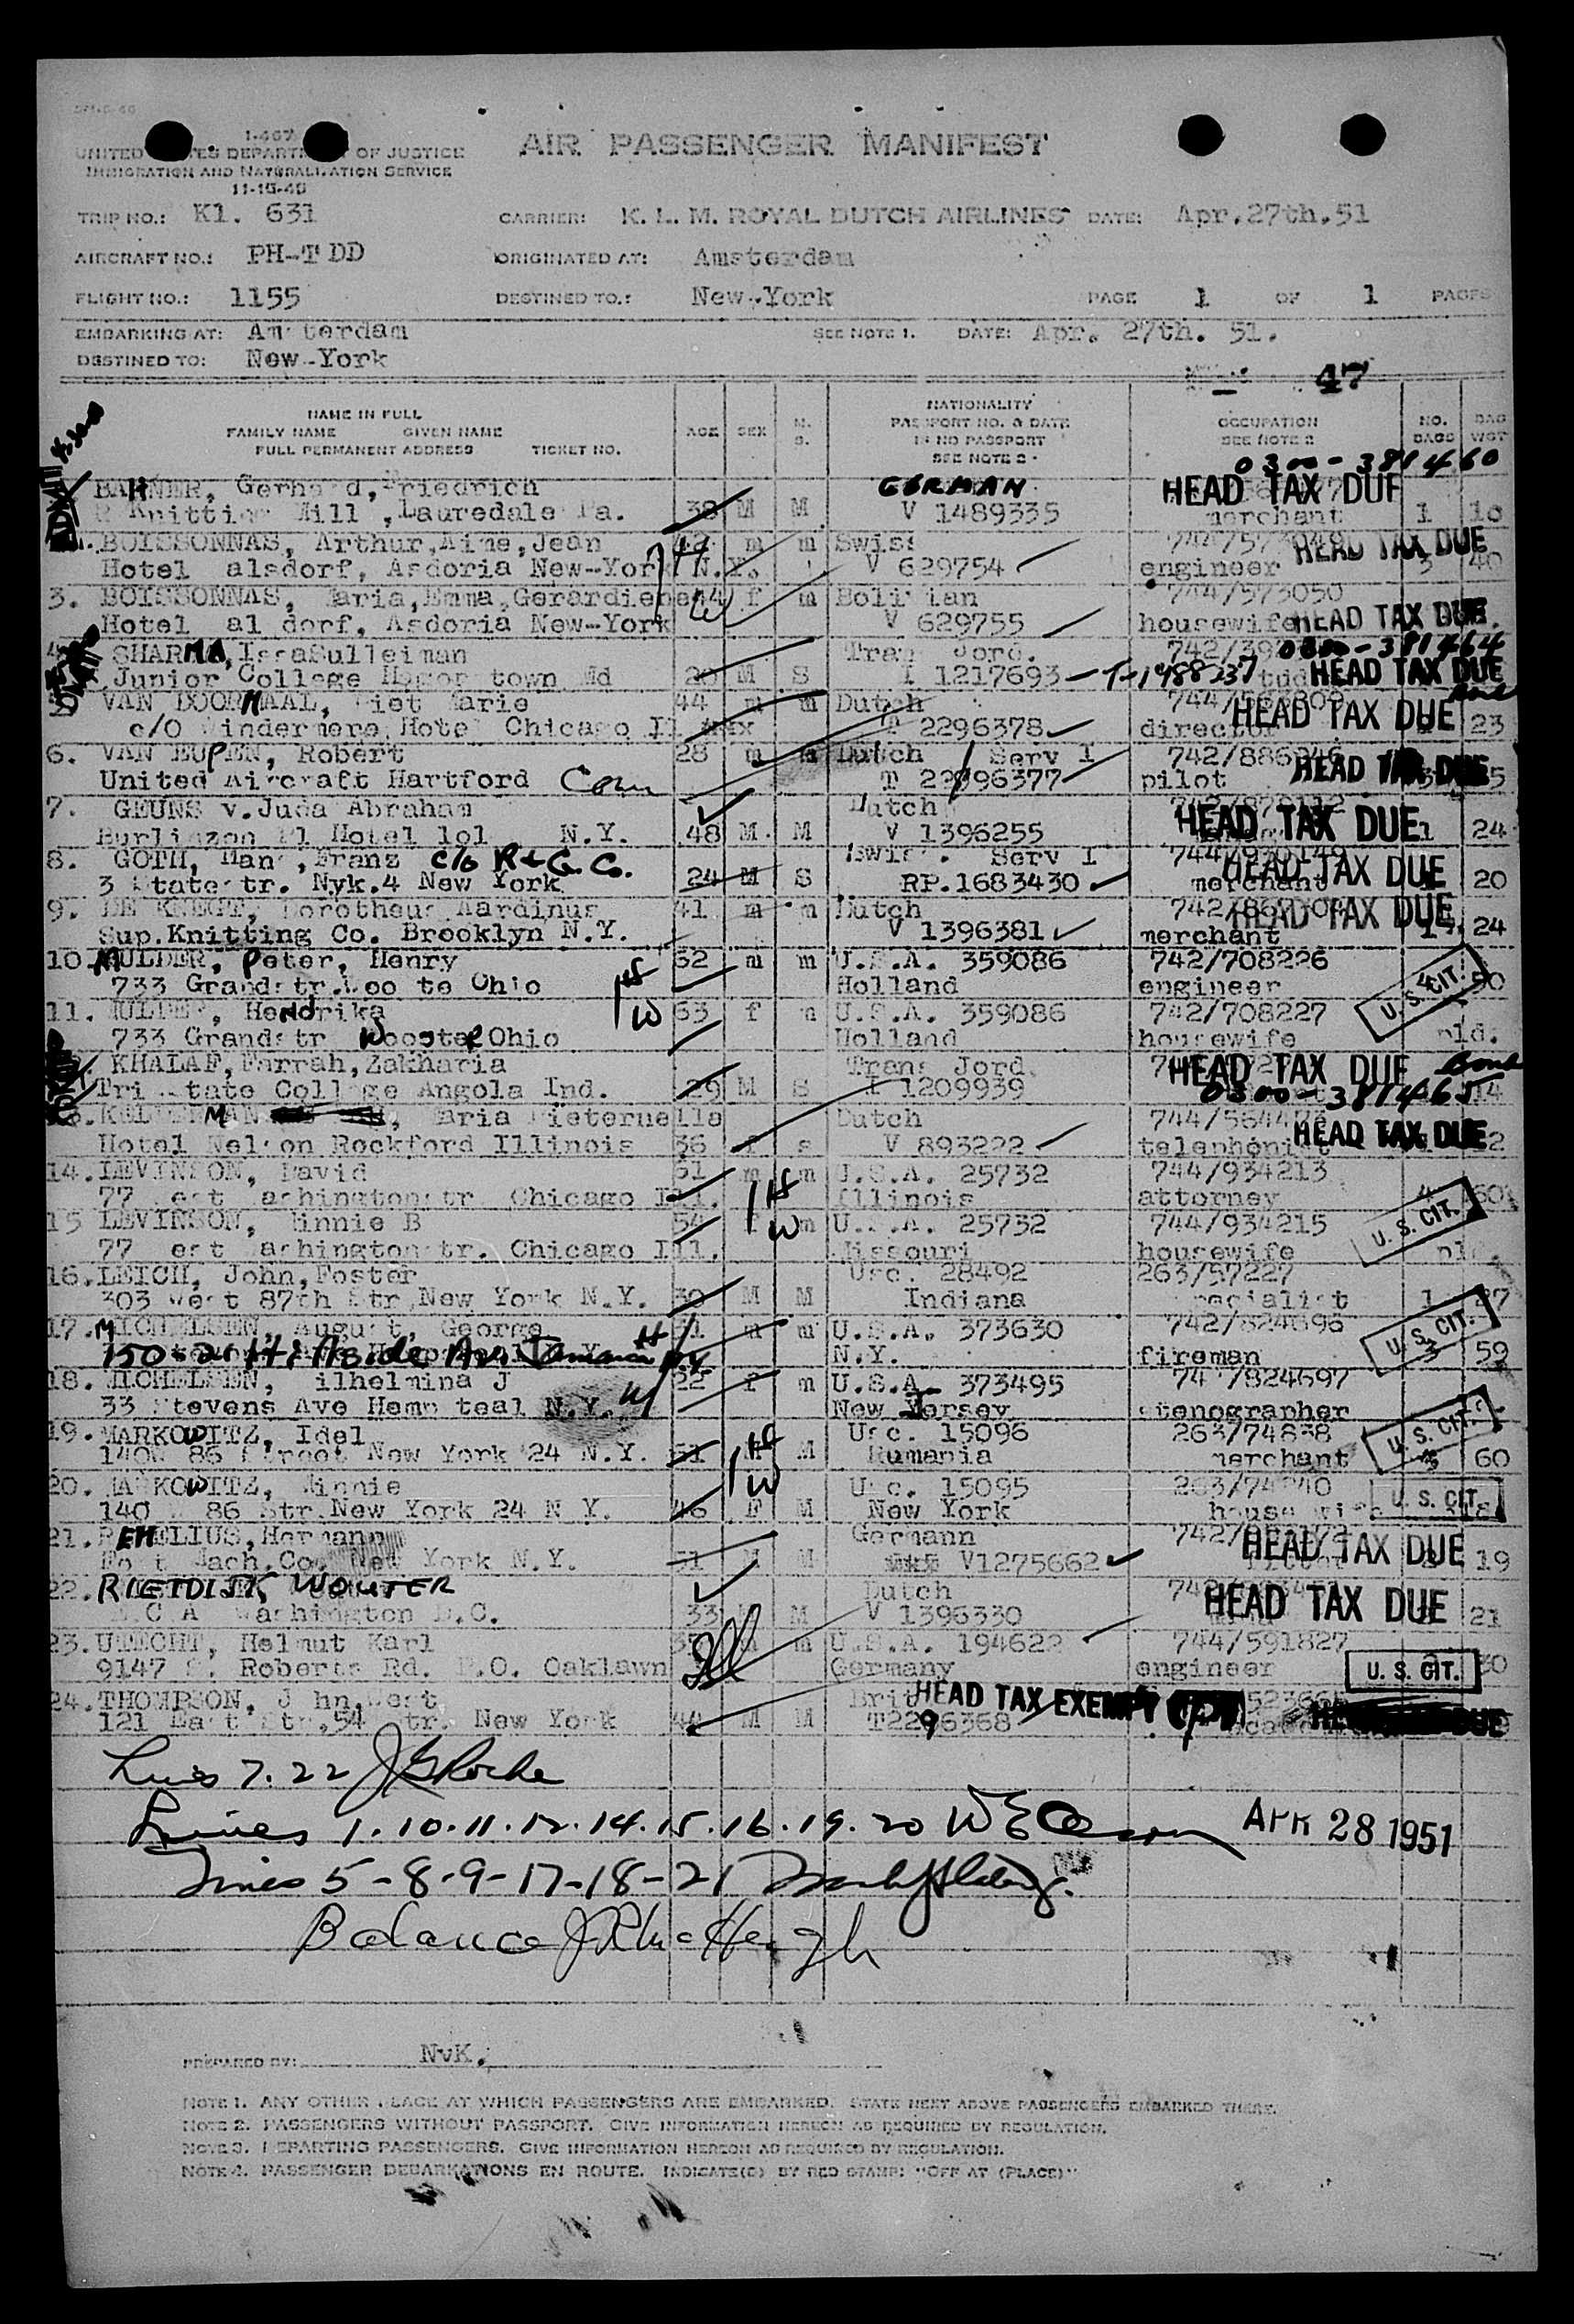 I-467
UNITED STATES DEPARTMENT OF JUSTICE
IMMIGRATION AND NATURALIZATION SERVICE
11-15-46
AIR PASSENGER MANIFEST
TRIP NO.: Kl. 631 CARRIER: K. L. M. ROYAL DUTCH AIRLINES DATE: Apr.27th.51
AIRCRAFT NO.: PH-T DD ORIGINATED AT: Amsterdam
FLIGHT NO.: 1155 DESTINED TO.: New-York PAGE 1 OF 1 PAGES
EMBARKING AT: Amsterdam SEE NOTE 1. DATE: Apr. 27th. 51.
DESTINED TO: New-York
47
NAME IN FULL
FAMILY NAME GIVEN NAME
FULL PERMANENT ADDRESS TICKET NO.
AGE SEX M. S.
NATIONALITY
PASSPORT NO. & DATE
IF NO PASSPORT
SEE NOTE 2
OCCUPATION
SEE NOTE 2
NO. BAGS
BAG WGT
0300-381460
BAHNER, Gerhard, Friedrich GERMAN HEAD TAX DUE
Knitting Mill, Lauredale Pa. 38 M M V 1489335 merchant 1 10
BOISSONNAS, Arthur,Aime,Jean 42 m m Swiss HEAD TAX DUE
Hotel alsdorf, Asdoria New-York N.Y. H V 629754 engineer 3 40
3. BOISSONNAS, Maria,Emma,Gerardiene 44 f m Bolivian 744/573050
Hotel al dorf, Asdoria New-York W V 629755 housewife HEAD TAX DUE.
SHARMA, IssaSulleiman Trans Jord. 0300-381464
Junior College town Md 20 M S T 1217693 - T-1488237 HEAD TAX DUE
VAN DOORMAAL, Piet Marie 44 m m Dutch Bond
c/o Windermere Hotel Chicago Ill T 2296378 director HEAD TAX DUE 23
6. VAN EUPEN, Robert 28 m m Dutch Serv 1 742/886246
United Aircraft Hartford Conn T 22996377 pilot HEAD TAX DUE
7. GEUNS v.Juda Abraham Dutch
Burlinzon Hotel lol N.Y. 48 M M V 1396255 HEAD TAX DUE 1 24
8. GOTH, Hans, Franz c/o R & G. Co. Swiss. Serv 1
3 State str. Nyk.4 New York 24 M S RP.1683430 merchant HEAD TAX DUE 20
9. DE KNEGT, Dorotheus Aardinus 41 m m Dutch HEAD TAX DUE
Sup.Knitting Co. Brooklyn N.Y. V 1396381 merchant 24
10. MULDER, Peter, Henry 62 m m U.S.A. 359086 742/708226
733 Grandstr. Ohio H Holland engineer U. S. CIT.
11. MULDER, Hendrika W 63 f m U.S.A. 359086 742/708227
733 Grandstr Wooster Ohio Holland housewife
KHALAF, Farrah, Zakharia Trans Jord. HEAD TAX DUE Bond
Tri State College Angola Ind. 29 M S T 1209939 0300-381465 14
, Maria Pieternella Dutch 744/564472
Hotel Nelson Rockford Illinois 36 f s V 893222 telephonist HEAD TAX DUE
14. LEVINSON, David 61 m m U.S.A. 25732 744/934213
77 West Washingtonstr Chicago Ill. H Illinois attorney 60
15 LEVINSON, Minnie B 54 W m U.S.A. 25732 744/934215 U. S. CIT.
77 West Washingtonstr. Chicago Ill. Missouri housewife
16. LEICH, John, Foster Usc. 28492 263/57227
303 West 87th Str, New York N.Y. 30 M M Indiana specialist 1 27
17. MICHELSEN, August, George 31 m m U.S.A. 373630 742/824696 U. S. CIT.
150-21 Hillside Av. Jamaica N.Y. H N.Y. fireman 3 59
18. MICHELSEN, Wilhelmina J 22 f m U.S.A. 373495 742/824697
33 Stevens Ave Hempsteal N.Y. W New Yersey stenographer
19. MARKOWITZ, Idel Usc. 15096 263/74838 U. S. CIT.
140W 86 Street New York 24 N.Y. 51 M M H Rumania merchant 60
20. MARKOWITZ, Minnie W Usc. 15095 263/74840
140 W 86 Str.New York 24 N Y. 46 F M New York house wife U. S. CIT.
21. Hermann Germann
Mach.Co. New York N.Y. 51 M M V1275662 HEAD TAX DUE 19
22. RIETDIJK WOUTER Dutch
Washington D.C. 33 M V 1396330 HEAD TAX DUE 21
23. UTECHT, Helmut Karl 35 m m U.S.A. 194622 744/591827
9147 S. Roberts Rd. P.O. Oaklawn Ill Germany engineer U. S. CIT. 30
24. THOMPSON, John, West Brit HEAD TAX EXEMPT
121 East Str.54 str. New York 44 M M T2296368
Lines 7. 22
Lines 1.10.11.12.14.15.16.19.20 APR 28 1951
Lines 5-8-9-17-18-21
Balance
PREPARED BY: NvK.
NOTE 1. ANY OTHER PLACE AT WHICH PASSENGERS ARE EMBARKED. STATE NEXT ABOVE PASSENGERS EMBARKED THERE.
NOTE 2. PASSENGERS WITHOUT PASSPORT. GIVE INFORMATION HEREON AS REQUIRED BY REGULATION.
NOTE 3. DEPARTING PASSENGERS. GIVE INFORMATION HEREON AS REQUIRED BY REGULATION.
NOTE 4. PASSENGER DEBARKATIONS EN ROUTE. INDICATE(D) BY RED STAMP: "OFF AT (PLACE)"